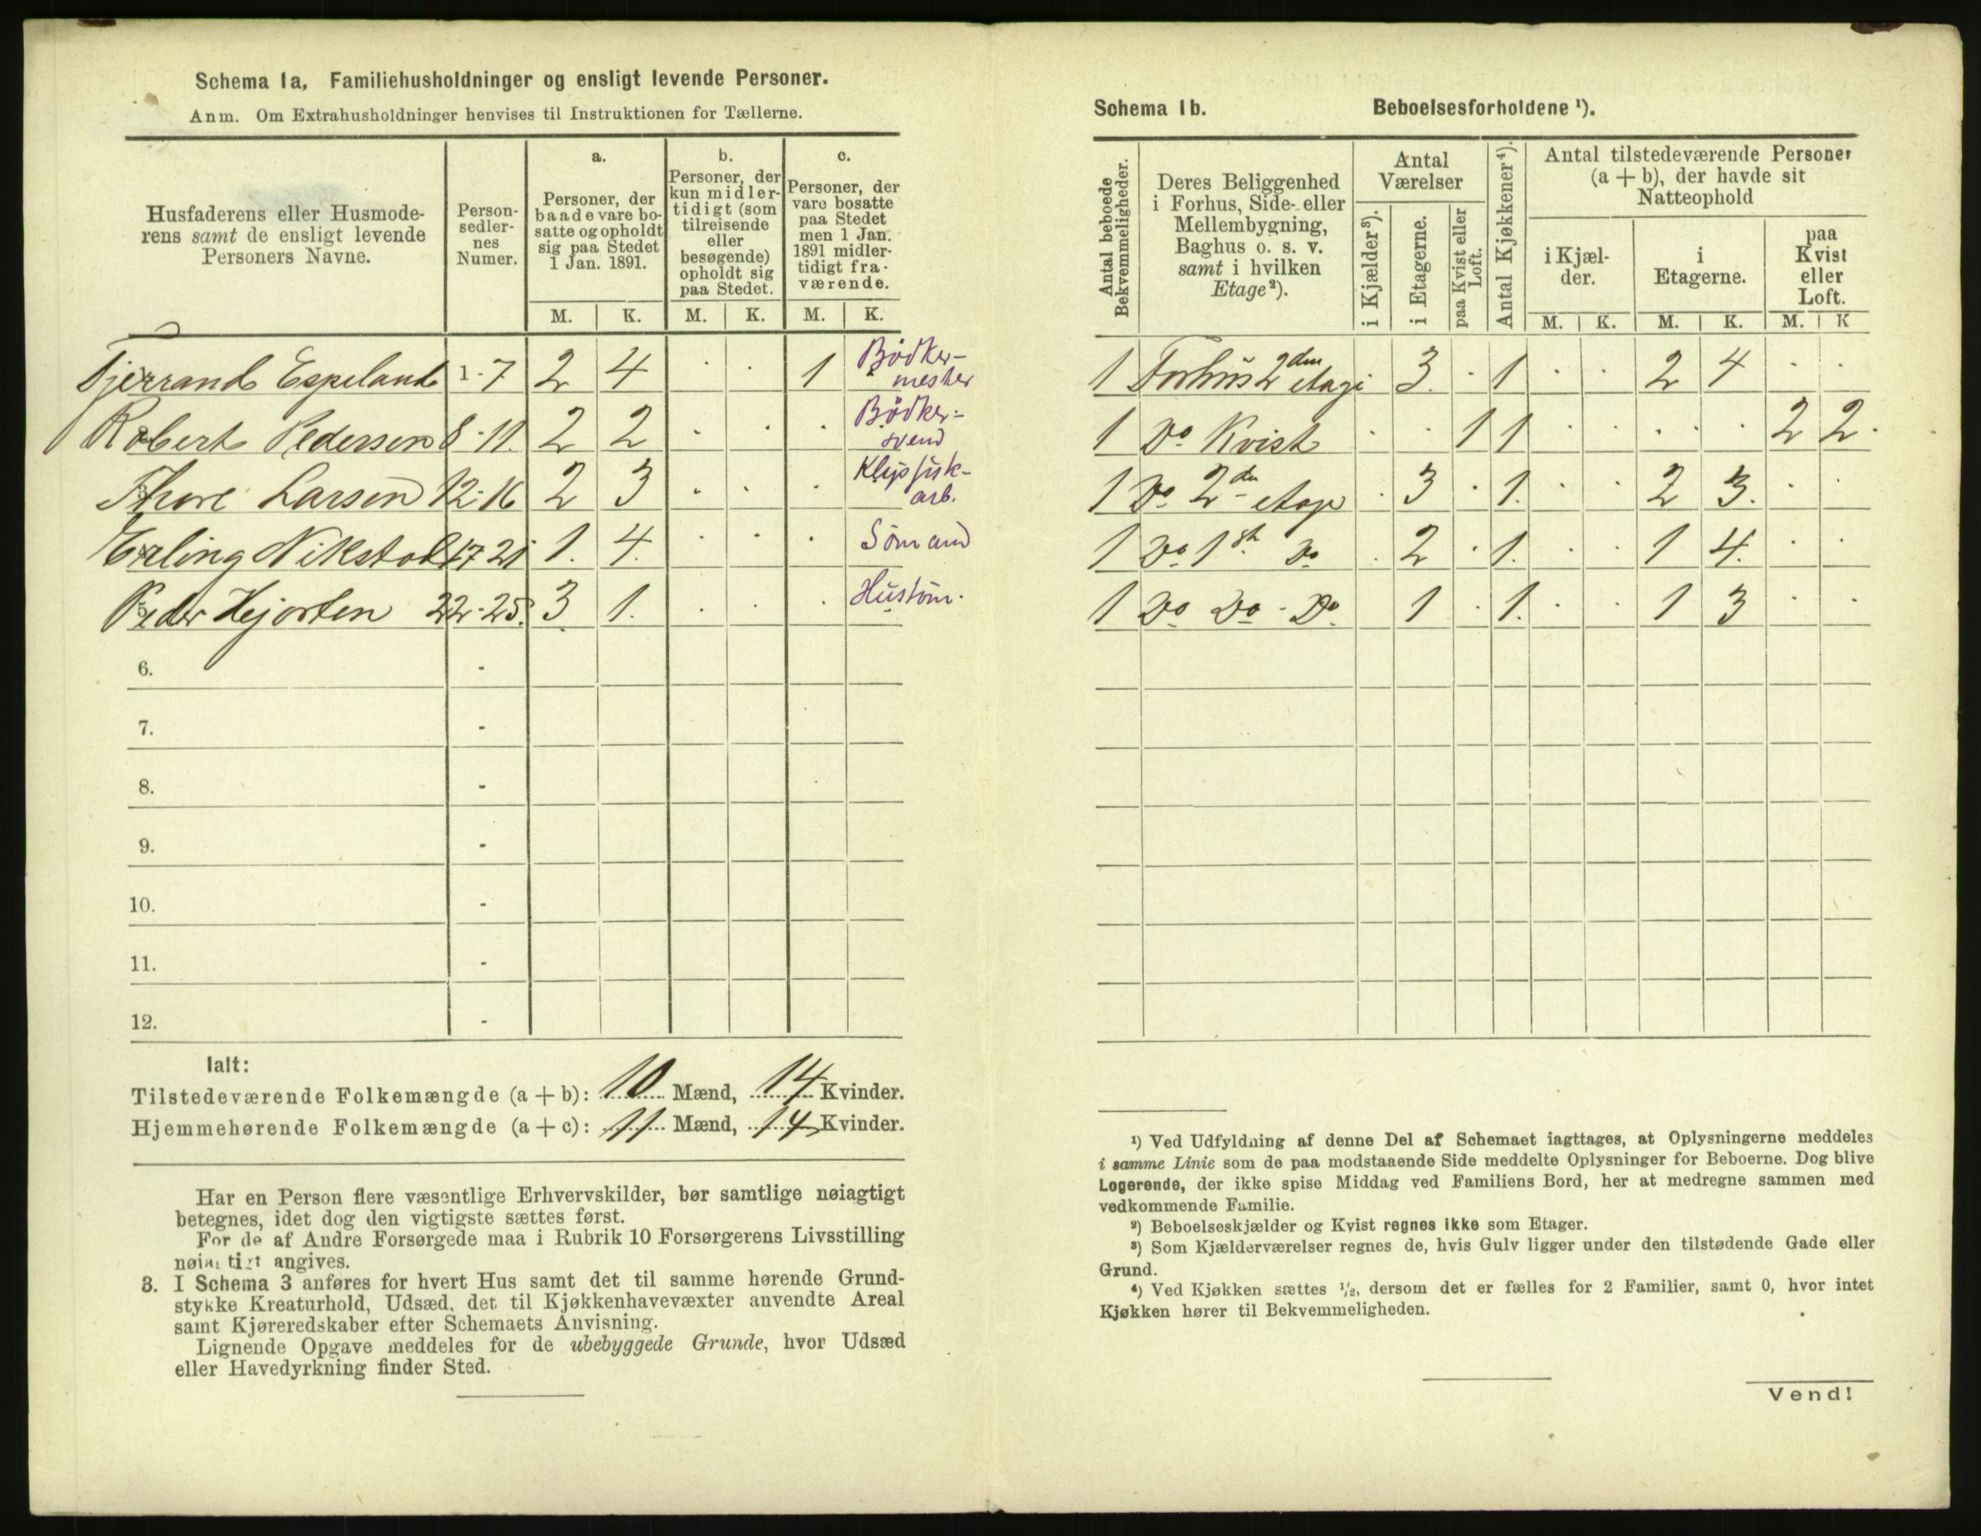 Schema 1a, Familiehusholdninger og ensligt levende Personer.
Anm. Om Extrahusholdninger henvises til Instruktionen for Tællerne.
Husfaderens eller Husmode-
rens samt de ensligt levende
Personers Navne.
Person-
sedler-
nes
Numer.
a.
Personer, der
baade vare bo-
satte og opholdt
sig paa Stedet
1 Jan. 1891.
b.
Personer, der
kun midler-
tidigt (som
tilreisende
eller
besøgende)
opholdt sig
paa Stedet.
c.
Personer, der
vare bosatte
paa Stedet
men 1 Jan.
1891 midler-
tidigt fra-
værende.
M. K. M. K. M. K.
Tjerrand Espeland 1-7 2 4 . . 1 Bødker-
mester
Robert Pedersen 8-11. 2 2 . . . Bødker-
svend
Thore Larsen 12-16 2 3 . . . Klipfisk-
arb.
Erling Nikstol 17-21 1. 4. . . . Sømand
Peder Hejorten 22-25. 3 1. . . . Hustøm.
6. -
7. -
8. -
9. -
10. -
11. -
12. -
Ialt:
Tilstedeværende Folkemængde (a + b): 10 Mænd, 14 Kvinder.
Hjemmehørende Folkemængde (a + c): 11 Mænd, 14 Kvinder.
Har en Person flere væsentlige Erhvervskilder, bør samtlige nøiagtigt
betegnes, idet dog den vigtigste sættes først.
For de af Andre Forsørgede maa i Rubrik 10 Forsørgerens Livsstilling
nøiagtigt angives.
3. I Schema 3 anføres for hvert Hus samt det til samme hørende Grund-
stykke Kreaturhold, Udsæd, det til Kjøkkenhavevæxter anvendte Areal
samt Kjøreredskaber efter Schemaets Anvisning.
Lignende Opgave meddeles for de ubebyggede Grunde, hvor Udsæd
eller Havedyrkning finder Sted.
Schema 1b. Beboelsesforholdene ¹).
Antal beboede
Bekvemmeligheder.
Deres Beliggenhed
i Forhus, Side- eller
Mellembygning,
Baghus o. s. v.
samt i hvilken
Etage²).
Antal
Værelser
i Kjælder³).
i Etagerne.
paa Kvist eller
Loft.
Antal Kjøkkener⁴).
Antal tilstedeværende Personer
(a + b), der havde sit
Natteophold
i Kjæl-
der.
i
Etagerne.
paa
Kvist
eller
Loft.
M. K. M. K. M. K
1 Forhus 2den etage 3. . 1 . . 2 4 . .
1 Do Kvist . . 1 1 . . . . 2 2.
1 Do 2den etage . 3 . 1. . . 2 3. . .
1 Do 1st. Do . 2 . 1. . . 1 4. . .
1 Do Do - Do. 1 . 1. . . 1 3 . .
¹) Ved Udfyldning af denne Del af Schemaet iagttages, at Oplysningerne meddeles
i samme Linie som de paa modstaaende Side meddelte Oplysninger for Beboerne. Dog blive
Logerende, der ikke spise Middag ved Familiens Bord, her at medregne sammen med
vedkommende Familie.
²) Beboelseskjælder og Kvist regnes ikke som Etager.
³) Som Kjælderværelser regnes de, hvis Gulv ligger under den tilstødende Gade eller
Grund.
⁴) Ved Kjøkken sættes ½, dersom det er fælles for 2 Familier, samt 0, hvor intet
Kjøkken hører til Bekvemmeligheden.
Vend!